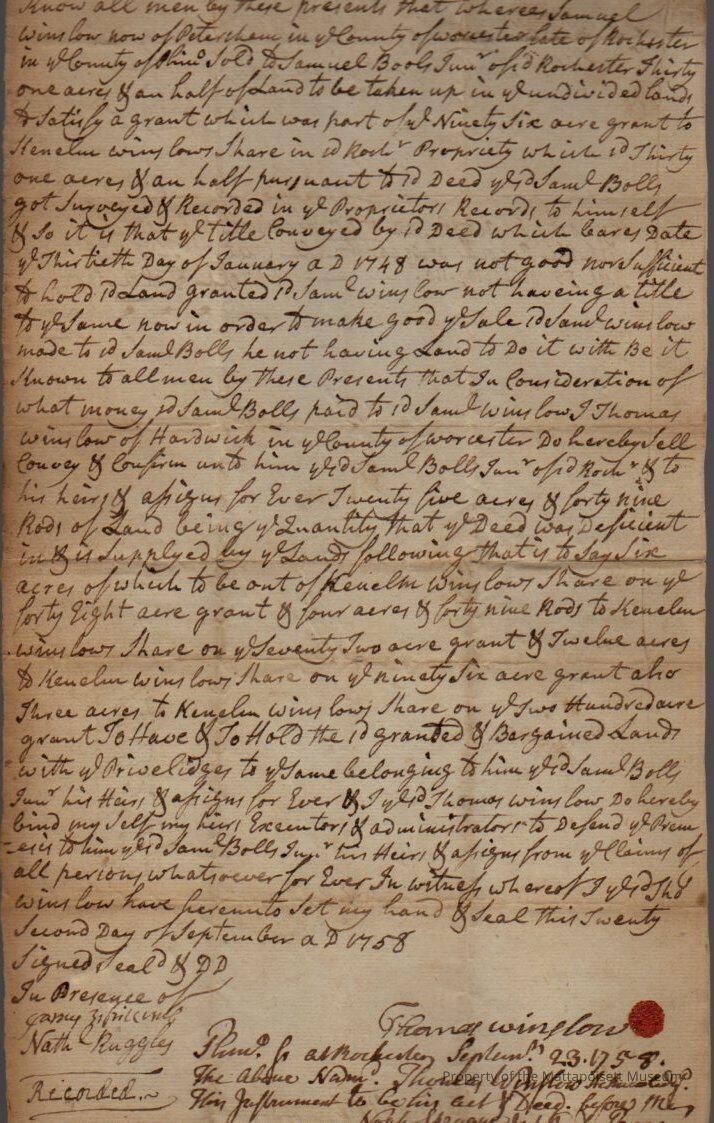 Know all men by these presents that whereas Samuel
winslow now of Petersham in ye County of worcester late of Rochester
in ye County of Plimo Sold to Samuel Bools Junr of sd Rochester Thirty
one acres & an half of Land to be taken up in ye undivided lands
to Satisfy a grant which was part of ye Ninety Six acre grant to
Kenelm winslows Share in sd Rochr Propriety which sd Thirty
one acres & an half pursuant to sd Deed ye sd Saml Bolls
got Surveyed & Recorded in ye Proprietors Records to himself
& So it is that ye title Conveyed by sd Deed which bares Date
ye Thirtieth Day of January a D 1748 was not good nor Sufficient
to hold sd Land granted sd Saml winslow not haveing a title
to ye Same now in order to make good ye Sale sd Saml winslow
made to sd Saml Bolls he not having Land to Do it with Be it
Known to all men by these Presents that In Consideration of
what money sd Saml Bolls paid to sd Saml winslow I Thomas
winslow of Hardwick in ye County of worcester Do hereby Sell
Convey & Confirm unto him ye sd Saml Bolls Junr of sd Rochr & to
his heirs & assigns for Ever Twenty five acres & forty nine
Rods of Land being ye Quantity that ye Deed was Deficient
in & is Supplyed by ye Lands following that is to Say Six
acres of which to be out of Kenelm winslows Share on ye
forty Eight acre grant & four acres & forty nine Rods to Kenelm
winslows Share on ye Seventy Two acre grant & Twelve acres
to Kenelm winslows Share on ye ninety Six acre grant also
Three acres to Kenelm winslows Share on ye Two Hundred acre
grant To Have & To Hold the sd granted & Bargained Lands
with ye Privelidges to ye Same belonging to him ye sd Saml Bolls
Junr his Heirs & assigns for Ever & I ye sd Thomas winslow Do hereby
bind my Self my heirs Executors & administrators to Defend ye Prem
-eses to him ye sd Saml Bolls Junr his Heirs & assigns from ye Claims of
all persons whatsoever for Ever In witness whereof I ye sd Tho
winslow have hereunto Set my hand & Seal this Twenty
Second Day of September a D 1758
Signed Seald & DD
In Presence of
Thomas winslow
Nathl Ruggles
Plimo Ss at Rochester Septemr 23. 1758.
The Above Namd Thomas winslow
This Instrument to be his act & Deed. before Me
Recorded
Property of the Mattapoisett Museum